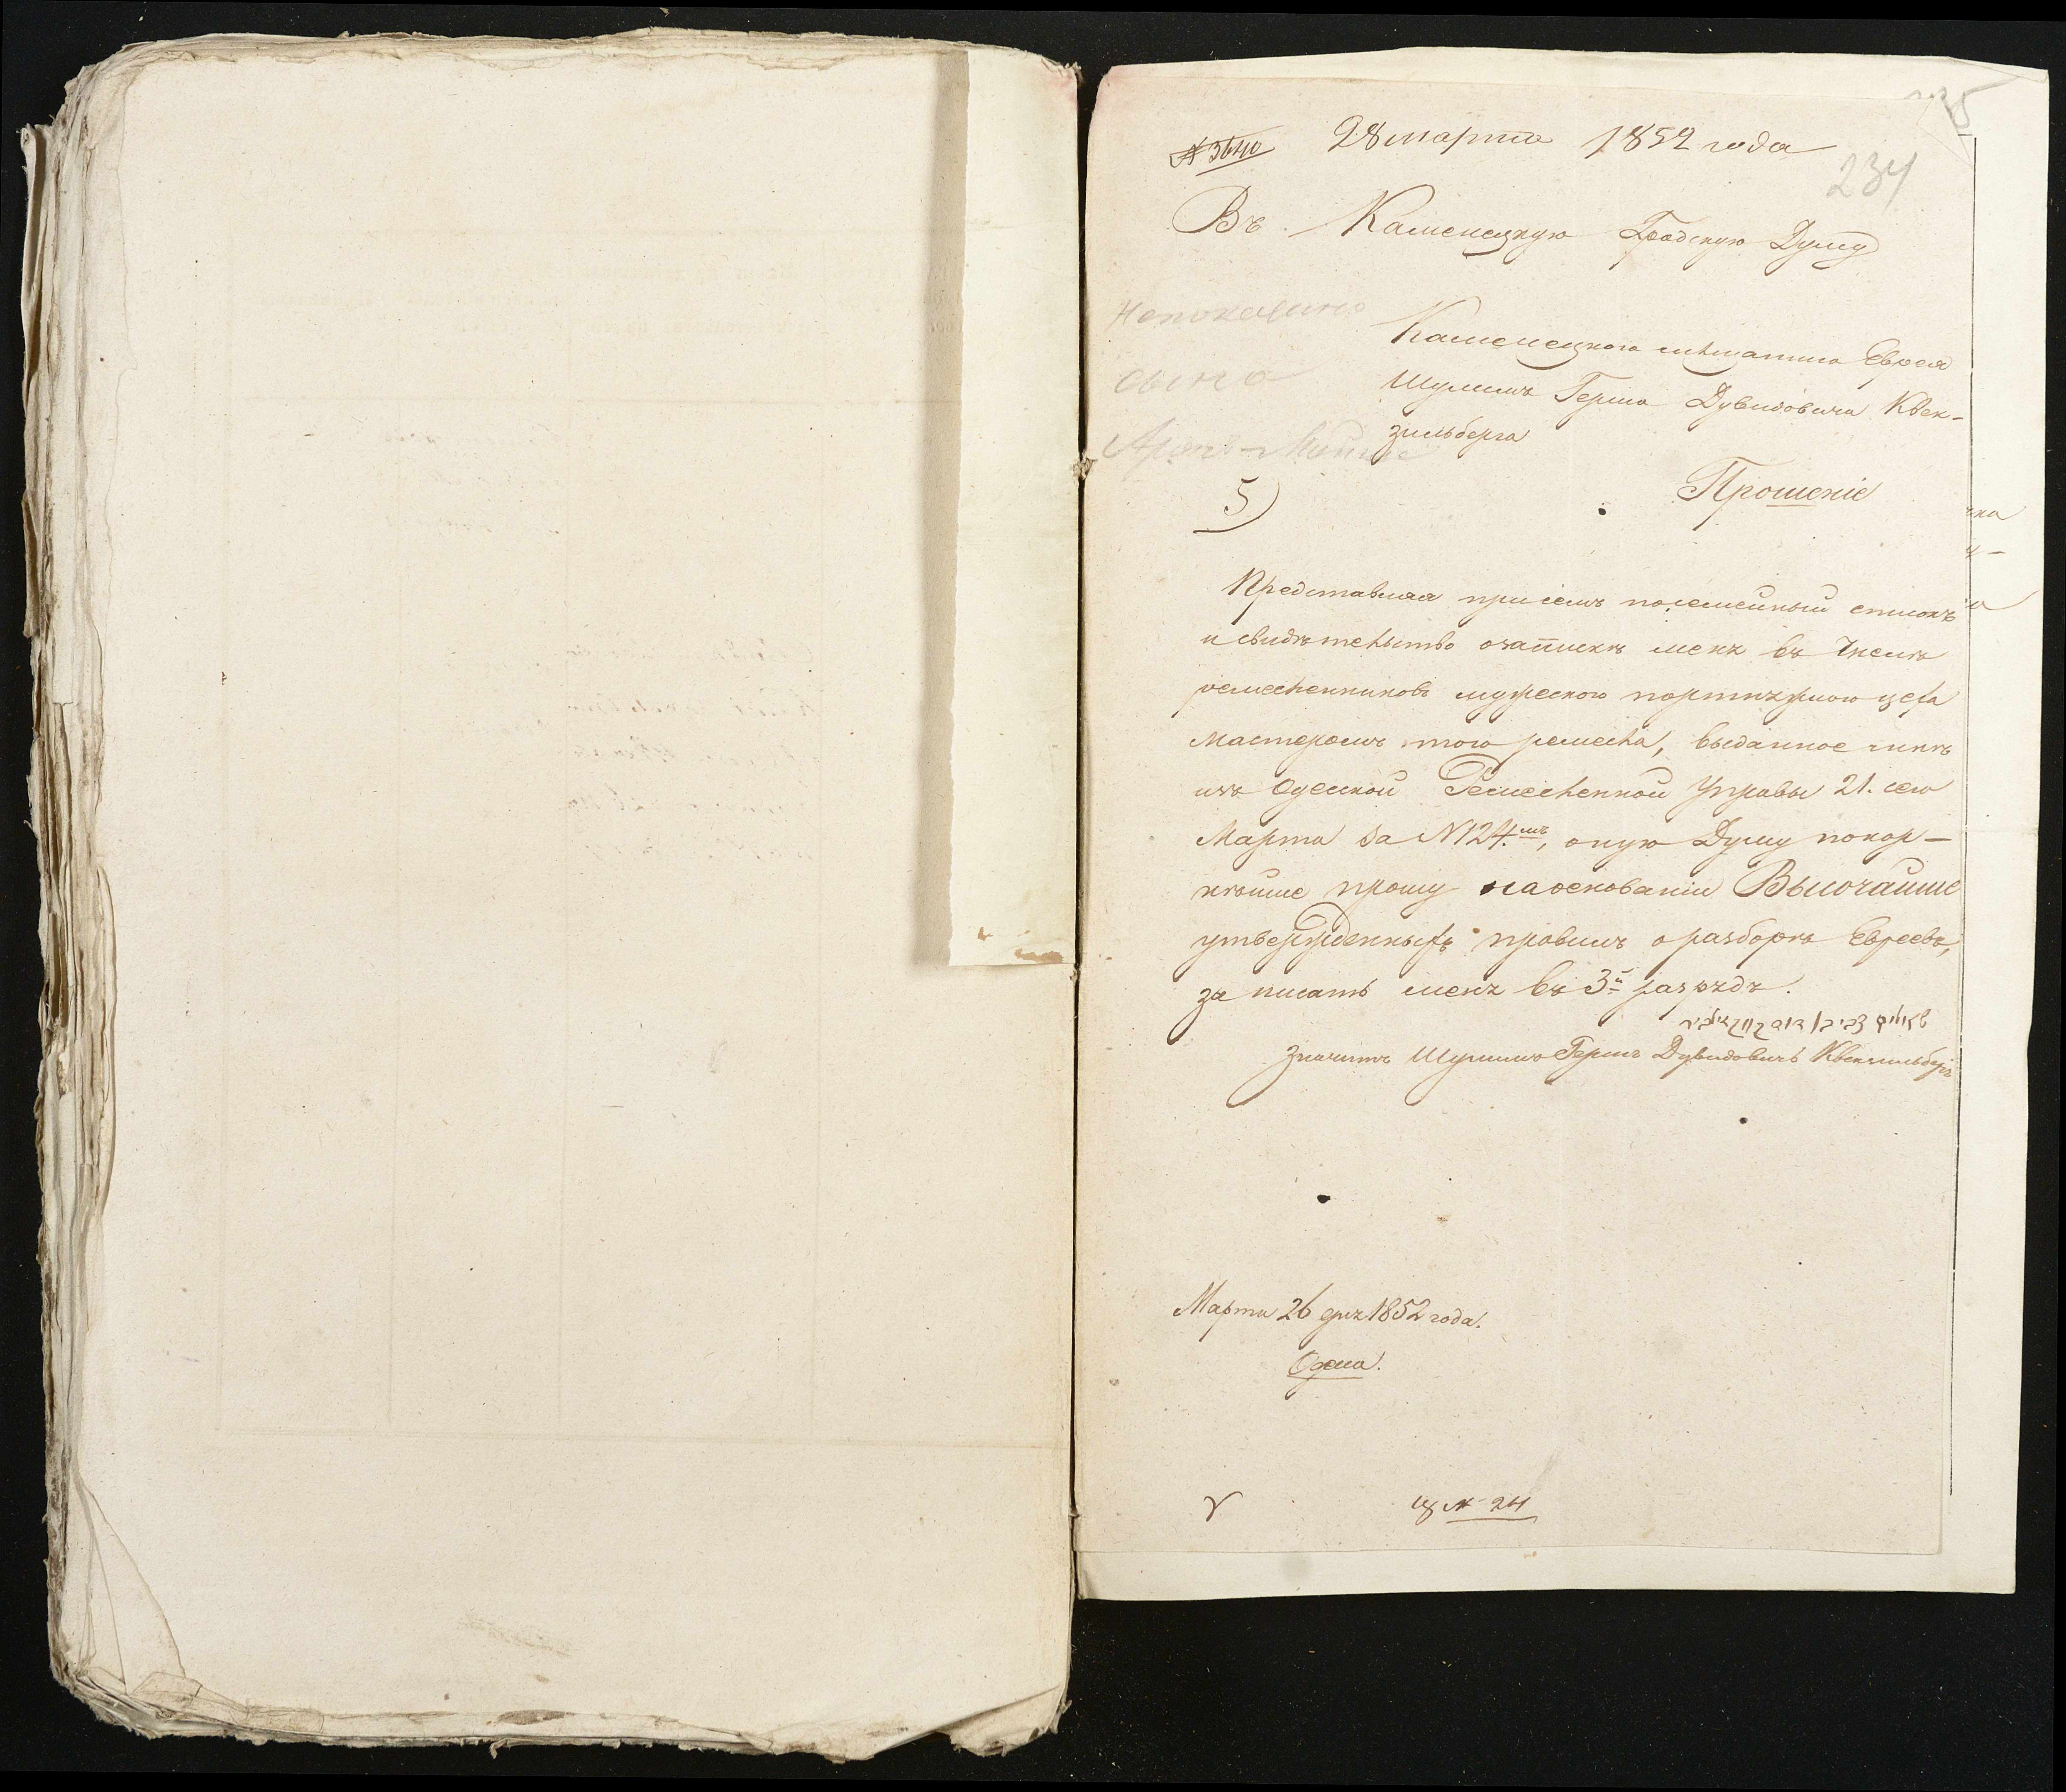 № 3640 28 марта 1852 года
234
Въ Каменецкую Градскую Думу
Непоказано
сына
Каменецкого мѣщанина Еврея
Шулима Герша Дувидовича Квек-
зильберга
5)
Прошеніе
Представляя присемъ посемейный списокъ
и свидѣтельство озапискѣ меня въ Число
ремесленниковъ мужескаго портняжного цеха
Мастеромъ того ремесла, выданное мнѣ
изъ Одесской Ремесленной Управы 21. сего
Марта за N 124.мъ, оную Думу покор-
нѣйше прошу наоснованіи Высочайше
утвержденныхъ правилъ оразборѣ Евреевъ,
записать меня въ 3й разрядъ.
Значитъ Шулимъ Гершъ Дувидовичъ Квекзильбергъ
Марта 26 дня 1852 года.
Одесса.
№ 24